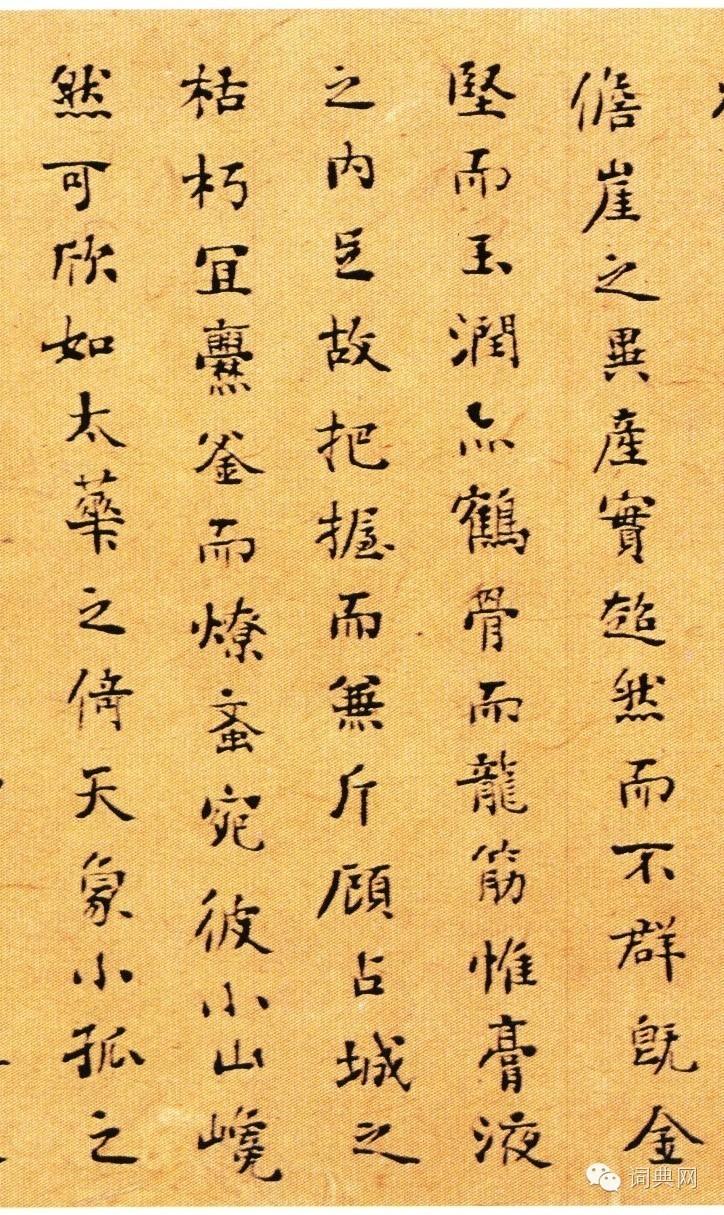 儋崖之異産實超然而不群既金
堅而玉潤亦鶴骨而龍筋惟膏液
之内足故把握而兼斤顧占城之
枯朽冝爨釜而燎蚉宛彼小山巉
然可欣如太華之倚天象小孤之
词典网